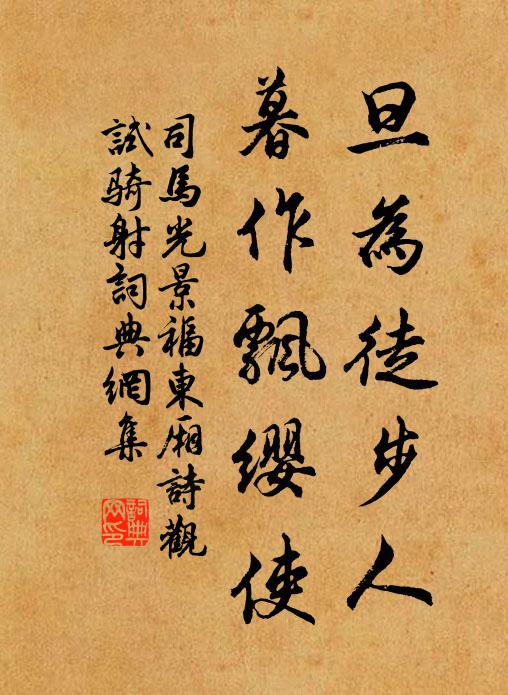 旦為徒步人
暮作飄纓使
司馬光景福東廂詩觀
試騎射詞典網集
詞典網印